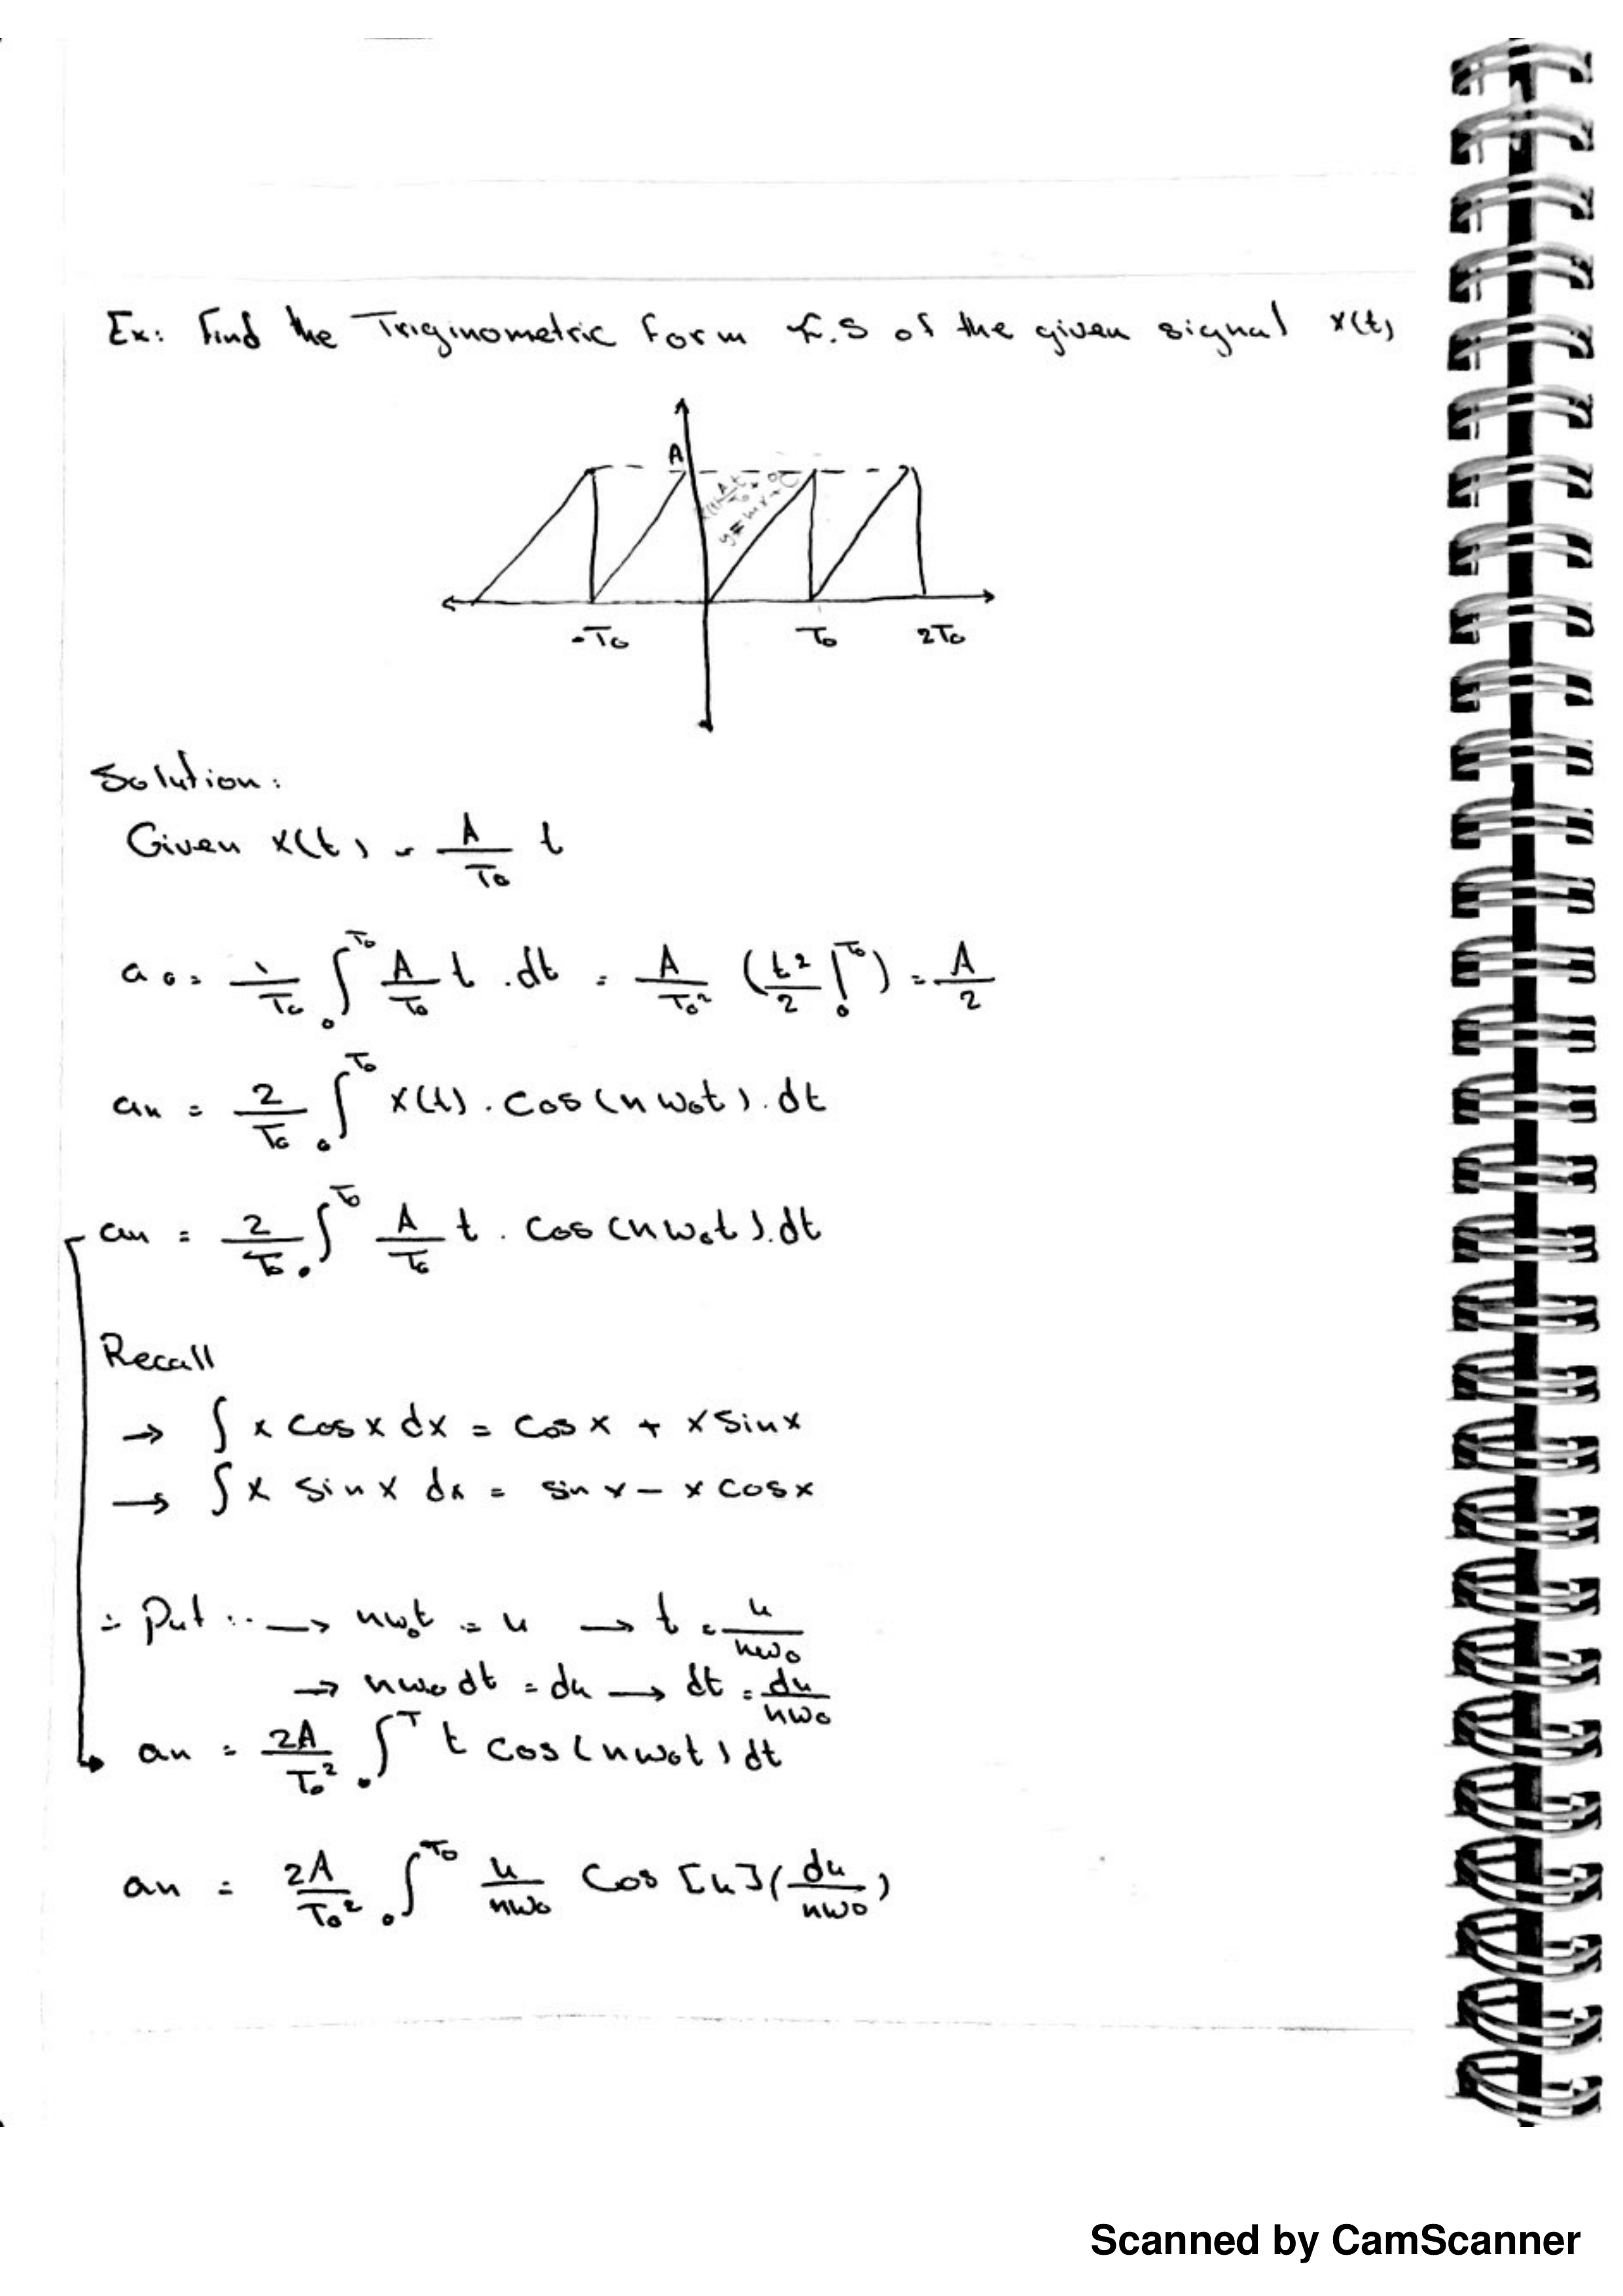 Ex: Find the Triginometric Form F.S of the given signal x(t)
A
x(t) = A/T₀ t + 0
y = mx + C
-T₀ T₀ 2T₀
Solution:
Given x(t) = A/T₀ t
a₀ = 1/T₀ ∫₀^T₀ A/T₀ t . dt = A/T₀² (t²/2 |₀^T₀) = A/2
an = 2/T₀ ∫₀^T₀ x(t) . Cos(nω₀t) . dt
an = 2/T₀ ∫₀^T₀ A/T₀ t . Cos(nω₀t) . dt
Recall
→ ∫ x Cos x dx = Cos x + x Sin x
→ ∫ x sin x dx = sin x - x cos x
÷ Put :. → nω₀t = u → t = u/nω₀
→ nω₀ dt = du → dt = du/nω₀
an = 2A/T₀² ∫₀^T t Cos(nω₀t) dt
an = 2A/T₀² ∫₀^T₀ u/nω₀ Cos [u] (du/nω₀)
Scanned by CamScanner